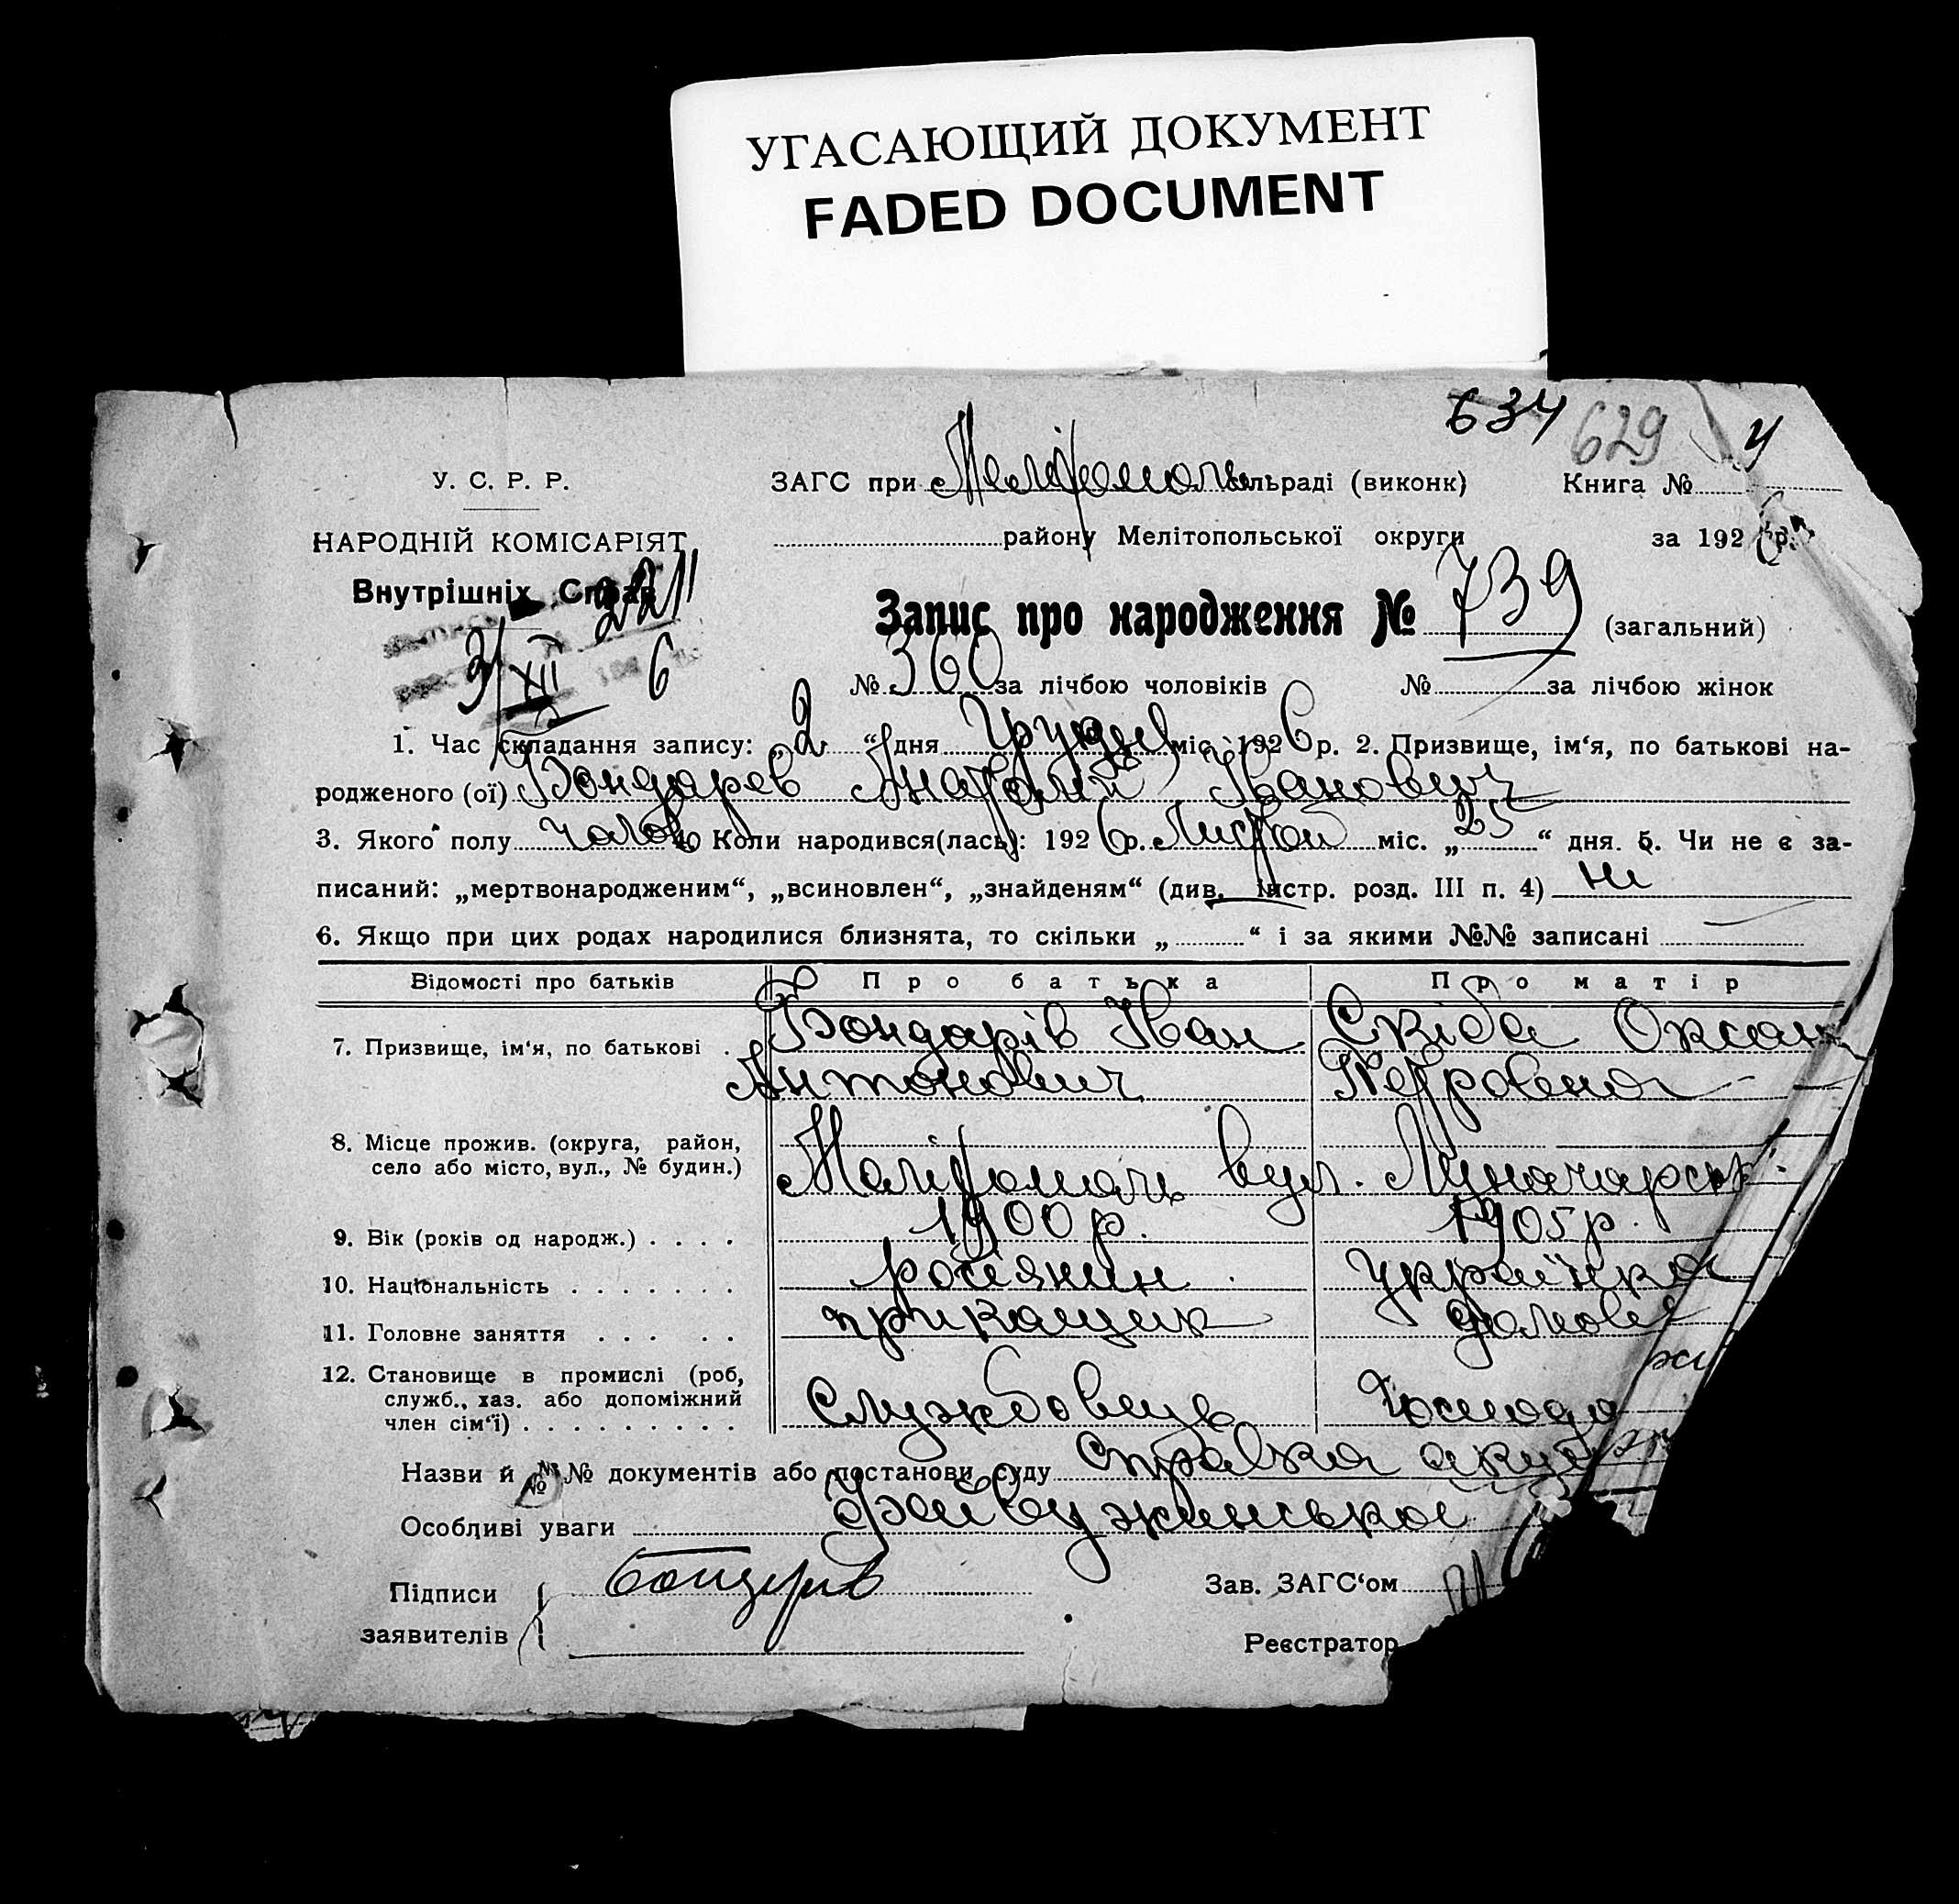 УГАСАЮЩИЙ ДОКУМЕНТ
FADED DOCUMENT
634 629 4
У. С. Р. Р.
ЗАГС при Мелітополь сільраді (виконк) Книга №
НАРОДНІЙ КОМІСАРІЯТ
району Мелітопольської округи за 1926 р.
Внутрішніх Справ
Запис про народження № 739 (загальний)
3/XII 6
№ 360 за лічбою чоловіків № за лічбою жінок
1. Час складання запису: „2“ дня Грудня міс. 1926 р. 2. Призвище, ім‘я, по батькові на-
родженого (ої) Бондарев Анатолий Іванович
3. Якого полу чолов 4. Коли народився(лась): 1926 р. Листопад міс. „25“ дня. 5. Чи не є за-
писаний: „мертвонародженим“, „всиновлен“, „знайденям“ (див. інстр. розд. III п. 4) ні
6. Якщо при цих родах народилися близнята, то скільки „ “ і за якими №№ записані
Відомості про батьків Про батька Про матір
7. Призвище, ім‘я, по батькові . Бондарів Іван Скіба Оксан
Антонович Петровна
8. Місце прожив. (округа, район,
село або місто, вул., № будин.) Меліт­ополь вул. Луначарськ
9. Вік (років од народж.) . . . . 1900 р. 1905 р.
10. Національність . . . . . . . росіянин українка
11. Головне заняття . . . . . прикащик домове
12. Становище в промислі (роб,
служб., хаз. або допоміжний
член сім‘ї) . . . . . . . . . Службовець Господа
Назви й №№ документів або постанови суду Справка акуш
Особливі уваги
Підписи
заявителів
Зав. ЗАГС‘ом
Реєстратор